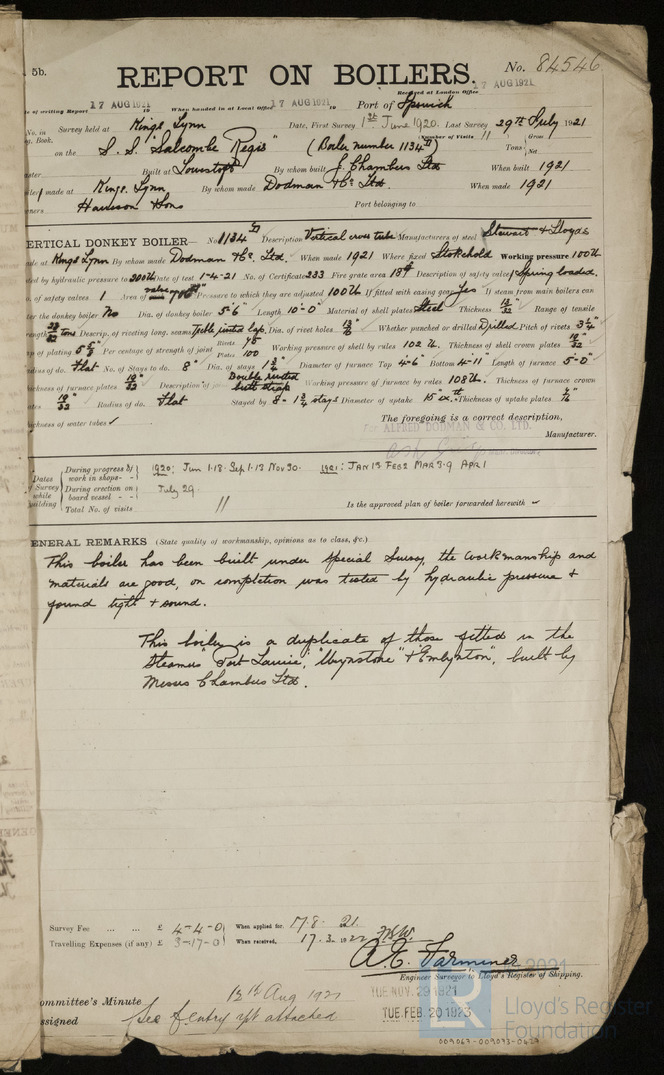 5b.
REPORT ON BOILERS.
No. 84546
Received at London Office 17 AUG 1921
te of writing Report 17 AUG 1921 19 When handed in at Local Office 17 AUG 1921 19 Port of Ipswich
No. in Survey held at Kings Lynn Date, First Survey 1st June 1920. Last Survey 29th July 1921
g. Book. (Number of Visits 11 Gross
on the S. S. "Salcombe Regis" (Boiler number 1134) Tons Net
aster Built at Lowestoft By whom built J. Chambers Ltd When built 1921
made at Kings Lynn By whom made Dodman & Co Ltd. When made 1921
ners Harrison Sons Port belonging to
ERTICAL DONKEY BOILER— No. 1134 Description Vertical cross tube Manufacturers of steel Stewart & Lloyds
de at Kings Lynn By whom made Dodman & Co. Ltd. When made 1921 Where fixed Stokehold Working pressure 100 lb
ed by hydraulic pressure to 200 lb Date of test 1-4-21 No. of Certificate 333 Fire grate area 18 Description of safety valves Spring loaded.
o. of safety valves 1 Area of Pressure to which they are adjusted 100 lb If fitted with easing gear Yes If steam from main boilers can
er the donkey boiler No Dia. of donkey boiler 5'-6" Length 10'-0" Material of shell plates Steel Thickness 13/32" Range of tensile
ength 28/32 tons Descrip. of riveting long. seams Treble riveted lap. Dia. of rivet holes Whether punched or drilled Drilled Pitch of rivets
p of plating Per centage of strength of joint Rivets Plates Working pressure of shell by rules 102 lb. Thickness of shell crown plates 19/32"
dius of do. Flat No. of Stays to do. 8" Dia. of stays 1 3/4" Diameter of furnace Top 4'-6" Bottom 4'-11" Length of furnace 5'-0"
hickness of furnace plates Description of joint Double riveted butt strap Working pressure of furnace by rules 108 lb. Thickness of furnace crown
ates 19/32" Radius of do. Flat Stayed by 8 - 1 3/4 stays Diameter of uptake 15" Thickness of uptake plates
hickness of water tubes
The foregoing is a correct description,
For ALFRED DODMAN & CO. LTD.
Manufacturer.
Dates of Survey while building
During progress of work in shops - - 1920: Jun 1.18. Sep 1.13 Nov 30. 1921: JAN 13 FEB 2 MAR 3.9 APR 1
During erection on board vessel - - July 29.
Total No. of visits 11 Is the approved plan of boiler forwarded herewith
ENERAL REMARKS (State quality of workmanship, opinions as to class, &c.)
This boiler has been built under special Survey, the workmanship and
materials are good, on completion was tested by hydraulic pressure &
found tight & sound.
This boiler is a duplicate of those fitted in the
Steamers "Port Launie", & "Emlynton", built by
Messrs Chambers Ltd.
Survey Fee ... ... £ 4-4-0 When applied for. 17.8. 21.
Travelling Expenses (if any) £ 3-17-0 When received, 17.3.1922
A. E. Farminer
Engineer Surveyor to Lloyd's Register of Shipping.
ommittee's Minute 12th Aug 1921 TUE. NOV. 29 1921
ssigned See f. entry rpt attached TUE. FEB. 20 1923
© 2021
LR
Lloyd's Register
Foundation
009067-009073-0627